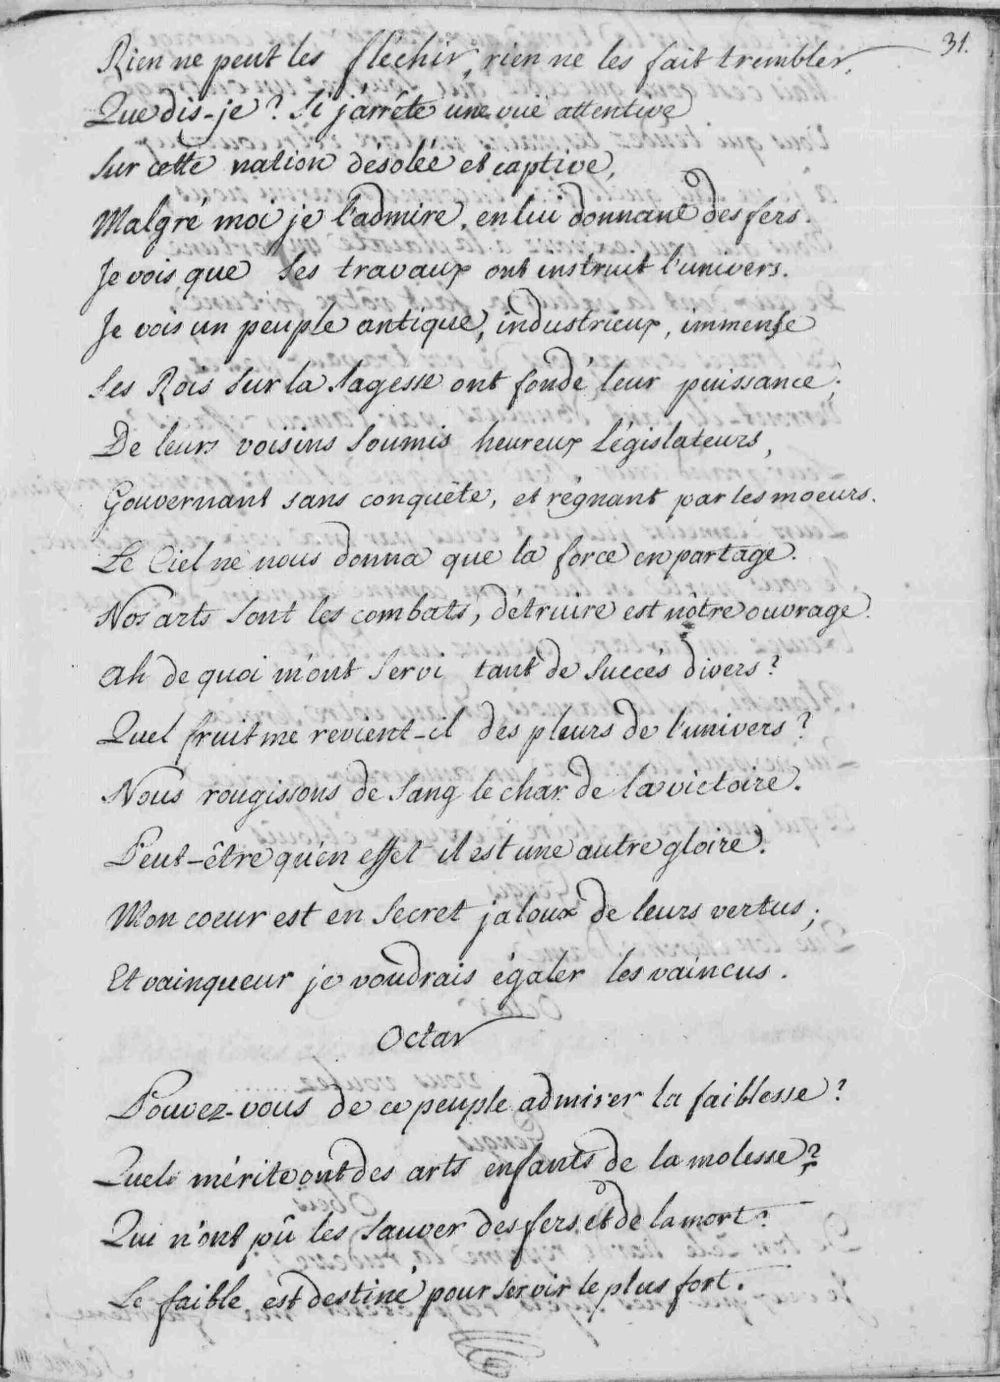 31.
Rien ne peut les fléchir, rien ne les fait trembler.
Que dis-je? Si j'arrête une vuë attentive
Sur cette nation desolée et captive,
Malgré moi je l'admire, en lui donnant des fers.
Je vois que ses travaux ont instruit l'univers.
Je vois un peuple antique, industrieux, immense
Ses Rois sur la Sagesse ont fondé leur puissance;
De leurs voisins soumis heureux Législateurs,
Gouvernant sans conquête, et régnant par les moeurs.
Le Ciel ne nous donna que la force en partage.
Nos arts sont les combats, détruire est nôtre ouvrage.
Ah de quoi m'ont servi tant de succés divers?
Quel fruit me revient-il des pleurs de l'univers?
Nous rougissons de sang le char de la victoire.
Peut-être qu'en effet il est une autre gloire.
Mon coeur est en secret jaloux de leurs vertus;
Et vainqueur je voudrais égaler les vaincus.
Octar
Pouvez-vous de ce peuple admirer la faiblesse?
Quel mérite ont des arts enfants de la molesse?
Qui n'ont pû les sauver des fers et de la mort?
Le faible est destiné pour servir le plus fort.